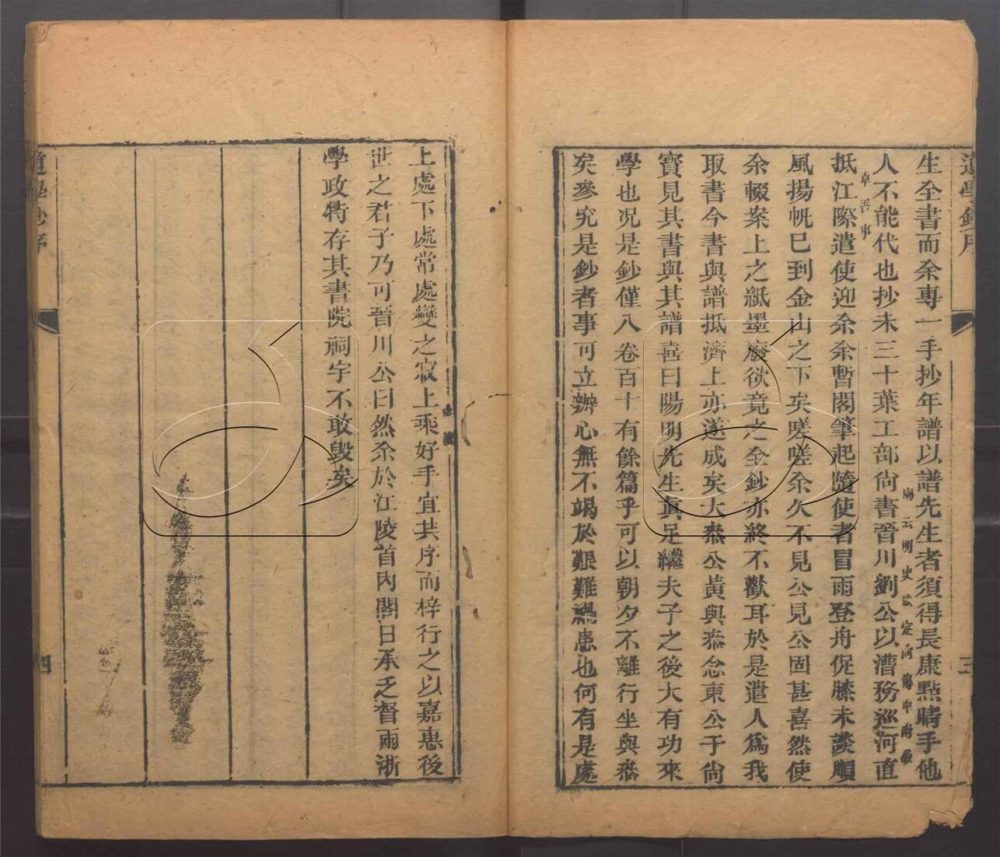 道學鈔序
三
生全書而余專一手抄年譜以譜先生者須得長康點睛手他
人不能代也抄未三十葉工部尚書晉川劉公以漕務巡河直
抵江際遣使迎余余暫閣筆起隨使者冒雨登舟促膝未談順
風揚帆已到金山之下矣嗟嗟余久不見公見公固甚喜然使
余輟案上之紙墨廢欲竟之全鈔亦終不歡耳於是遣人為我
取書今書與譜抵濟上亦遂成矣大叅公黃與叅念東公于尚
寶見其書與其譜喜曰陽明先生真足繼夫子之後大有功來
學也况是鈔僅八卷百十有餘篇乎可以朝夕不離行坐與叅
矣叅究是鈔者事可立辦心無不竭於艱難禍患也何有是處
上處下處常處變之寂上乘好手宜共序而梓行之以嘉惠後
世之君子乃可晉川公曰然余於江陵首內閣日承乏督兩浙
學政特存其書院祠宇不敢毀矣
道學鈔序
四